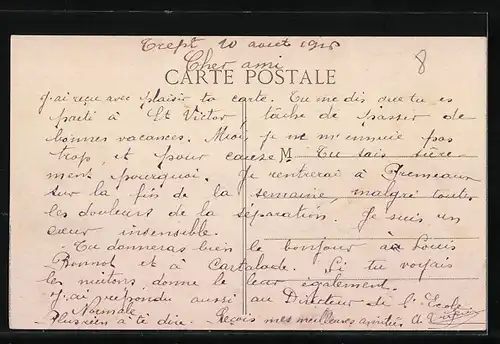 Trept 10 août 1915
8
Cher ami
CARTE POSTALE
J'ai reçu avec plaisir ta carte. Tu me dis que tu es
parti à St Victor, tâche de passer de
bonnes vacances. Moi, je ne m'ennuie pas
trop, et pour cause M Tu sais sûre-
ment pourquoi. Je rentrerai à
sur la fin de la semaine, malgré toutes
les douleurs de la séparation. Je suis un
cœur insensible.
Tu donneras bien le bonjour à Louis
et à Si tu voyais
les donne le leur également.
J'ai répondu aussi au Directeur de l'Ecole
Normale.
Plus rien à te dire. Reçois mes meilleures amitiés. A.